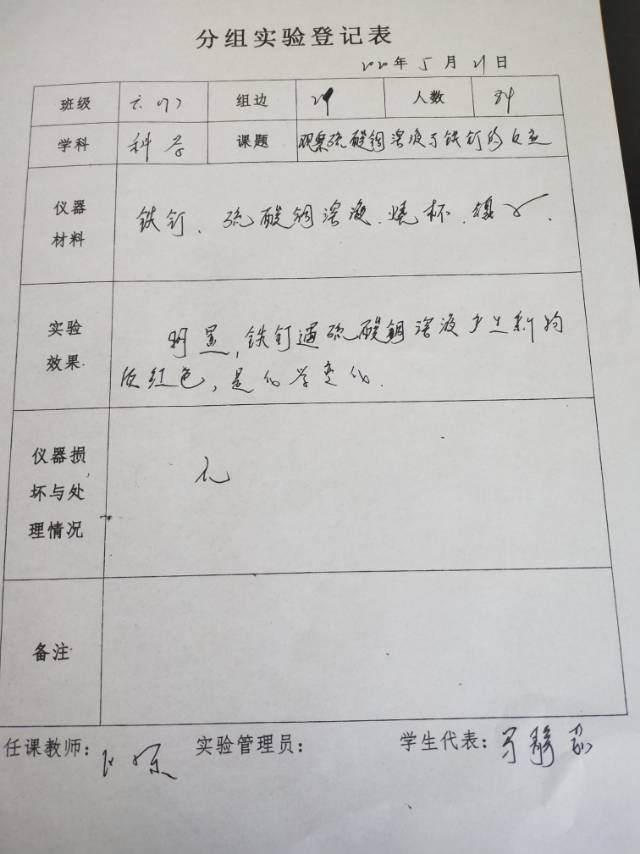 分组实验登记表
2020年5月21日
班级 六(7) 组边 29 人数
学科 科学 课题 观察硫酸铜溶液与铁钉的反应
仪器材料 铁钉、硫酸铜溶液、烧杯、镊子.
实验效果. 明显,铁钉遇硫酸铜溶液产生新的
灰红色,是化学变化.
仪器损
坏与处
理情况 无
备注
任课教师: 实验管理员: 学生代表: